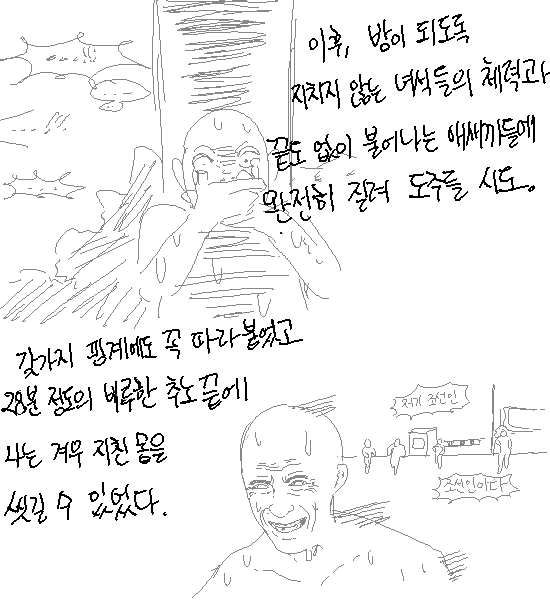 이후, 밤이 되도록
지치지 않는 녀석들의 체력과
끝도 없이 불어나는 애새끼들에
완전히 질려 도주를 시도.
갖가지 핑계에도 꼭 따라붙었고
28분 정도의 비루한 추노 끝에
나는 겨우 지친 몸을
씻길 수 있었다.
저기 조선인
조선인이다